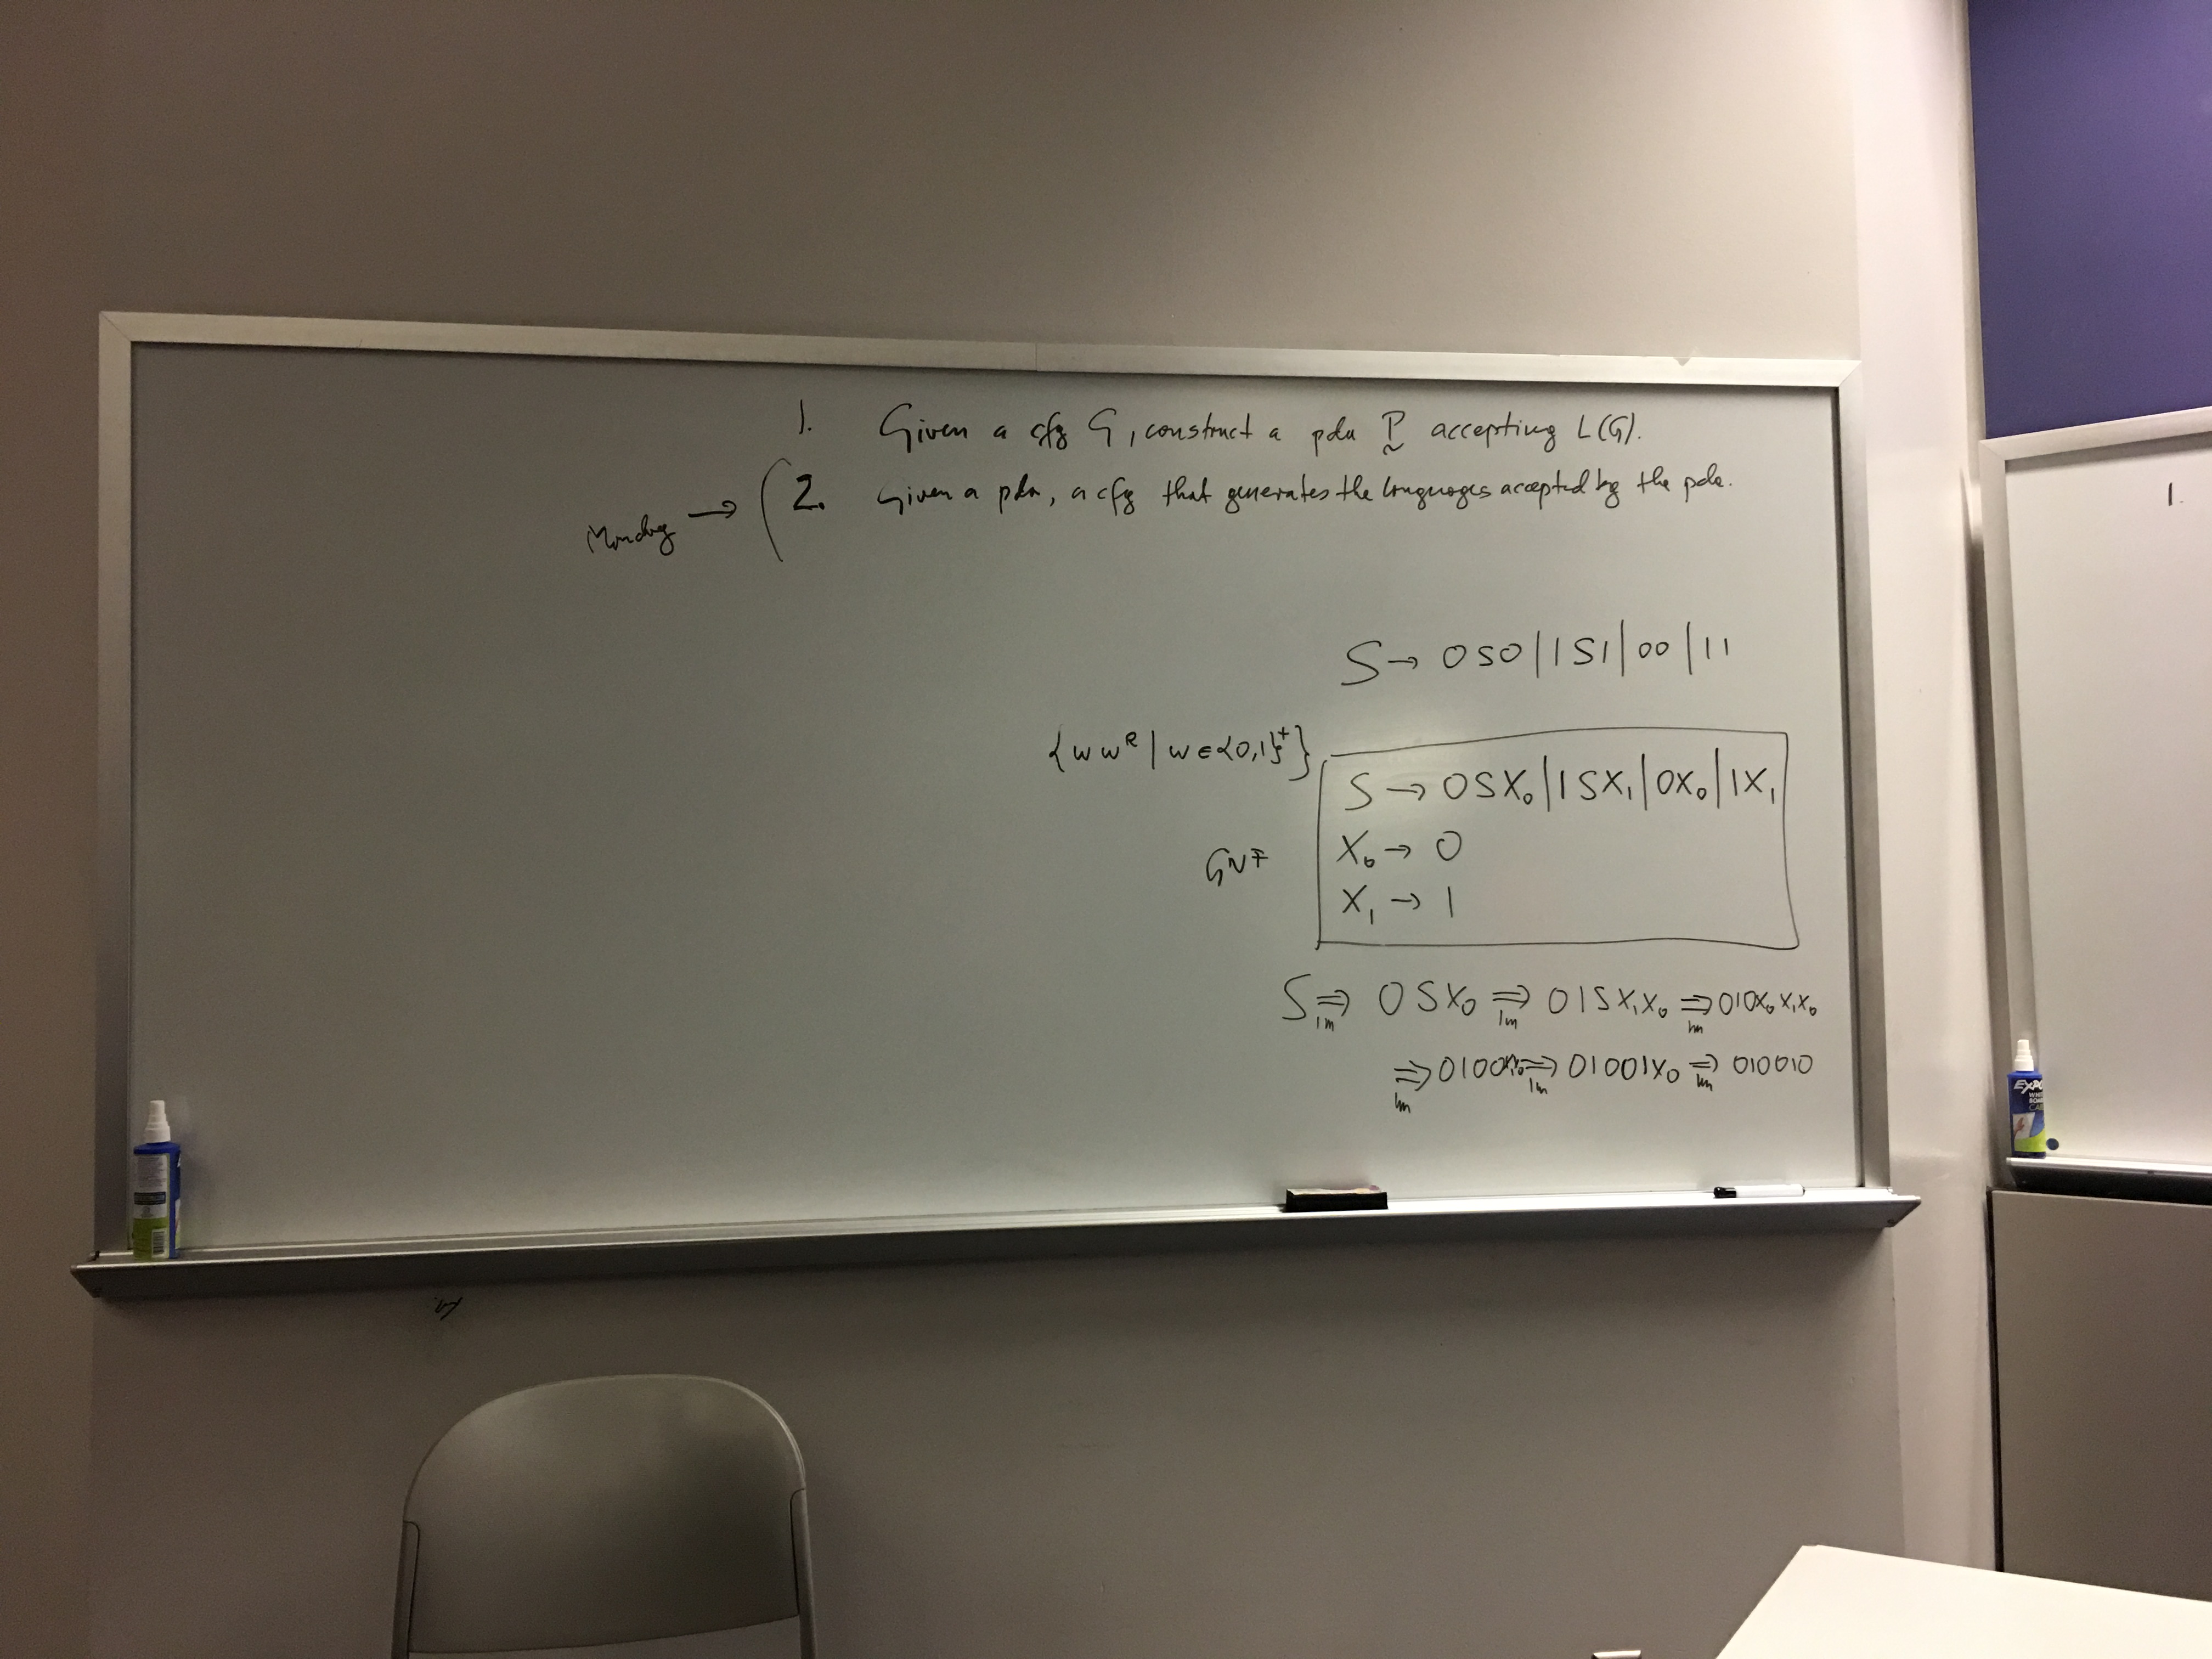 1. Given a cfg G, construct a pda P accepting L(G).
Monday → (2. Given a pda, a cfg that generates the languages accepted by the pda.
1.
S → 0S0 | 1S1 | 00 | 11
{ww^R | w∈{0,1}^+}
S → 0SX₀ | 1SX₁ | 0X₀ | 1X₁
GNF
X₀ → 0
X₁ → 1
S ⇒lm 0SX₀ ⇒lm 01SX₁X₀ ⇒lm 010X₀X₁X₀
⇒lm 0100X₁X₀ ⇒lm 01001X₀ ⇒lm 010010
EXPO